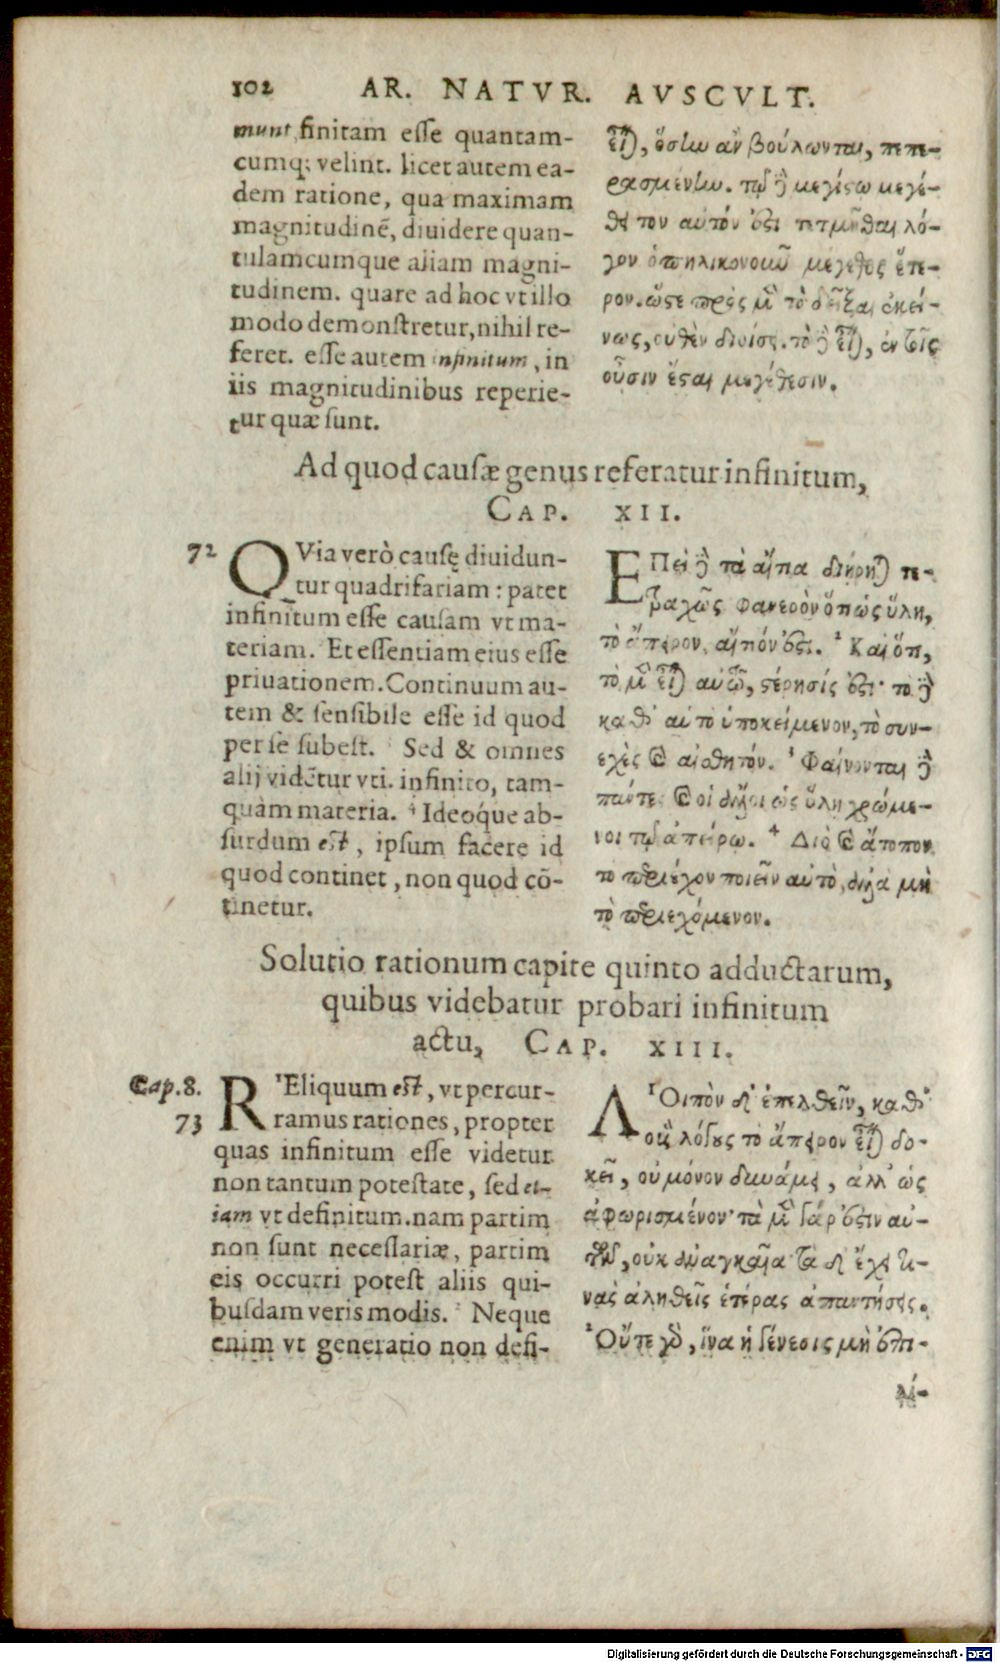 102 AR. NATVR. AVSCVLT.
munt finitam esse quantam-
cumq; velint. licet autem ea-
dem ratione, qua maximam
magnitudinē, diuidere quan-
tulamcumque aliam magni-
tudinem. quare ad hoc vt illo
modo demonstretur, nihil re-
feret. esse autem infinitum, in
iis magnitudinibus reperie-
tur quæ sunt.
εἶναι, ὅσην ἂν βούλωνται, πεπε-
ρασμένην. τῷ δὲ μεγίστῳ μεγέ-
θει τὸν αὐτόν ἐστι τετμῆσθαι λό-
γον ὁπηλικονοῦν μέγεθος ἕτε-
ρον. ὥστε πρὸς μὲν τὸ δεῖξαι ἐκεί-
νως, οὐθὲν διοίσει. τὸ δὲ εἶναι, ἐν τοῖς
οὖσιν ἔσται μεγέθεσιν.
Ad quod causæ genus referatur infinitum,
CAP. XII.
72 QVia verò causę diuidun-
tur quadrifariam: patet
infinitum esse causam vt ma-
teriam. Et essentiam eius esse
priuationem. Continuum au-
tem & sensibile esse id quod
per se subest. Sed & omnes
alij vidētur vti. infinito, tam-
quàm materia. ⁴ Ideóque ab-
surdum est, ipsum facere id
quod continet, non quod cō-
tinetur.
ΕΠεὶ δὲ τὰ αἴτια διῄρηται τε-
τραχῶς φανερὸν ὅτι ὡς ὕλη,
τὸ ἄπειρον, αἴτιόν ἐστι. ² Καὶ ὅτι,
τὸ μὲν εἶναι αὐτῷ, στέρησίς ἐστι· τὸ δὲ
καθ' αὑτὸ ὑποκείμενον, τὸ συν-
εχὲς καὶ αἰσθητόν. ³ Φαίνονται δὲ
πάντες καὶ οἱ ἄλλοι ὡς ὕλῃ χρώμε-
νοι τῷ ἀπείρῳ. ⁴ Διὸ καὶ ἄτοπον
τὸ περιέχον ποιεῖν αὐτὸ, ἀλλὰ μὴ
τὸ περιεχόμενον.
Solutio rationum capite quinto adductarum,
quibus videbatur probari infinitum
actu, CAP. XIII.
Cap. 8.
73
R¹Eliquum est, vt percur-
ramus rationes, propter
quas infinitum esse videtur
non tantum potestate, sed et-
iam vt definitum. nam partim
non sunt necessariæ, partim
eis occurri potest aliis qui-
busdam veris modis. ² Neque
enim vt generatio non defi-
Λ¹Οιπὸν δ' ἐπελθεῖν, καθ'
οὓς λόγους τὸ ἄπειρον εἶναι δο-
κεῖ, οὐ μόνον δυνάμει, ἀλλ' ὡς
ἀφωρισμένον· τὰ μὲν γάρ ἐστιν αὐ-
τῶν, οὐκ ἀναγκαῖα τὰ δ' ἔχει τι-
νὰς ἀληθεῖς ἑτέρας ἀπαντήσεις.
²Οὔτε γὰρ, ἵνα ἡ γένεσις μὴ ἐπι-
λί-
Digitalisierung gefördert durch die Deutsche Forschungsgemeinschaft - DFG